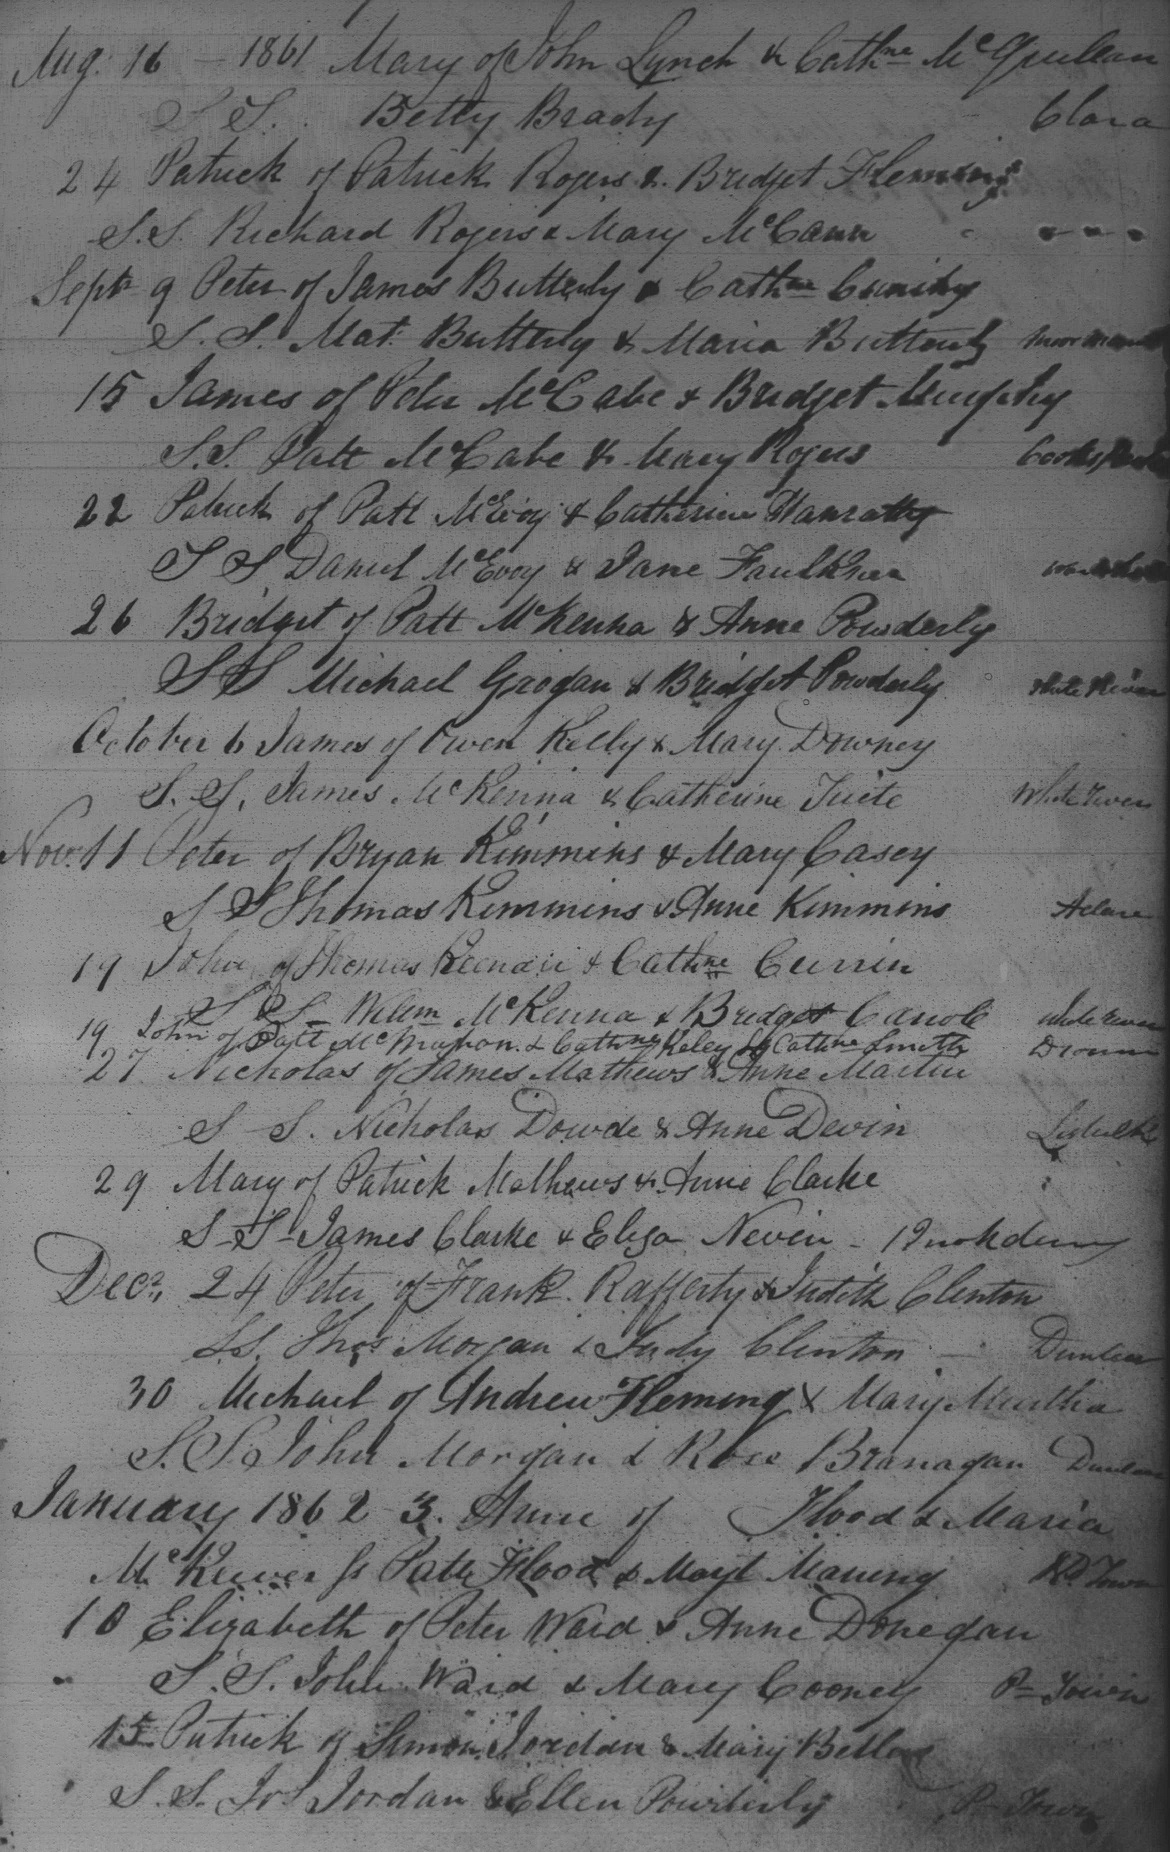 Aug. 16 - 1861 Mary of John Lynch & Cathne McQuillan
S S. Betty Brady Clara
24 Patrick of Patrick Rogers & Bridget Fleming
S.S. Richard Rogers & Mary McCann
Septr 9 Peter of James Butterly & Cathne
S. S. Mat. Butterly & Maria Butterly
15 James of Peter McCabe & Bridget Murphy
S.S. Patt McCabe & Mary Rogers
22 Patrick of Patt McEvoy & Catherine Hanratty
S S Daniel McEvoy & Jane Faulkner
26 Bridget of Patt McKenna & Anne Powderly
S S Michael Grogan & Bridget Powderly White River
October 6 James of Owen Kelly & Mary Downey
S. S. James McKenna & Catherine Tuite White River
Nov. 11 Peter of Bryan Kimmins & Mary Casey
S S Thomas Kimmins & Anne Kimmins Aclare
19 John of Thomas Keenan & Cathne Currin
S S Willm McKenna & Bridget White River
19 John of Patt McMahon & Cathne Keley Ss Cathne Smith
27 Nicholas of James Mathews & Anne Martin
S S. Nicholas Dowde & Anne Devin
29 Mary of Patrick Mathews & Anne Clarke
S S James Clarke & Eliza Nevin -
Decr. 24 Peter of Frank Rafferty & Judith Clinton
S.S. Thos Morgan & Judy Clinton - Dunleer
30 Michael of Andrew Fleming & Mary Murtha
S. S. John Morgan & Rose Branagan
January 1862 3. Anne of Flood & Maria
McKeever Ss Patt Flood & Margt Maning
10 Elizabeth of Peter Ward & Anne Donegan
S. S. John Ward & Mary Cooney P- Town
15 Patrick of Simon Jordan & Mary
S. S. Jos Jordan & Ellen Powderly P- Town